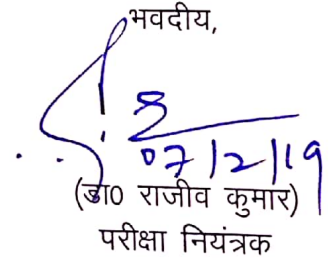 भवदीय,
07/2/19
(डा0 राजीव कुमार)
परीक्षा नियंत्रक